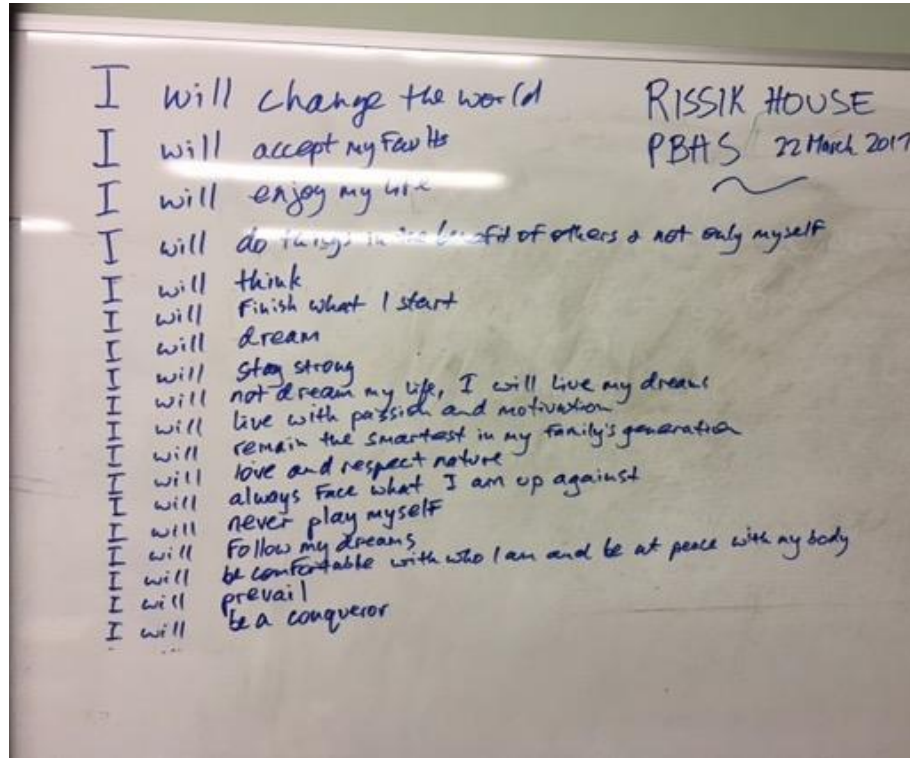 I will change the world
RISSIK HOUSE
I will accept my Faults
PBHS 22 March 2017
I will enjoy my life
I will do things in the benefit of others & not only myself
I will think
I will Finish what I start
I will dream
I will stay strong
I will not dream my life, I will live my dreams
I will live with passion and motivation
I will remain the smartest in my family's generation
I will love and respect nature
I will always Face what I am up against
I will never play myself
I will Follow my dreams
I will be comfortable with who I am and be at peace with my body
I will prevail
I will be a conqueror